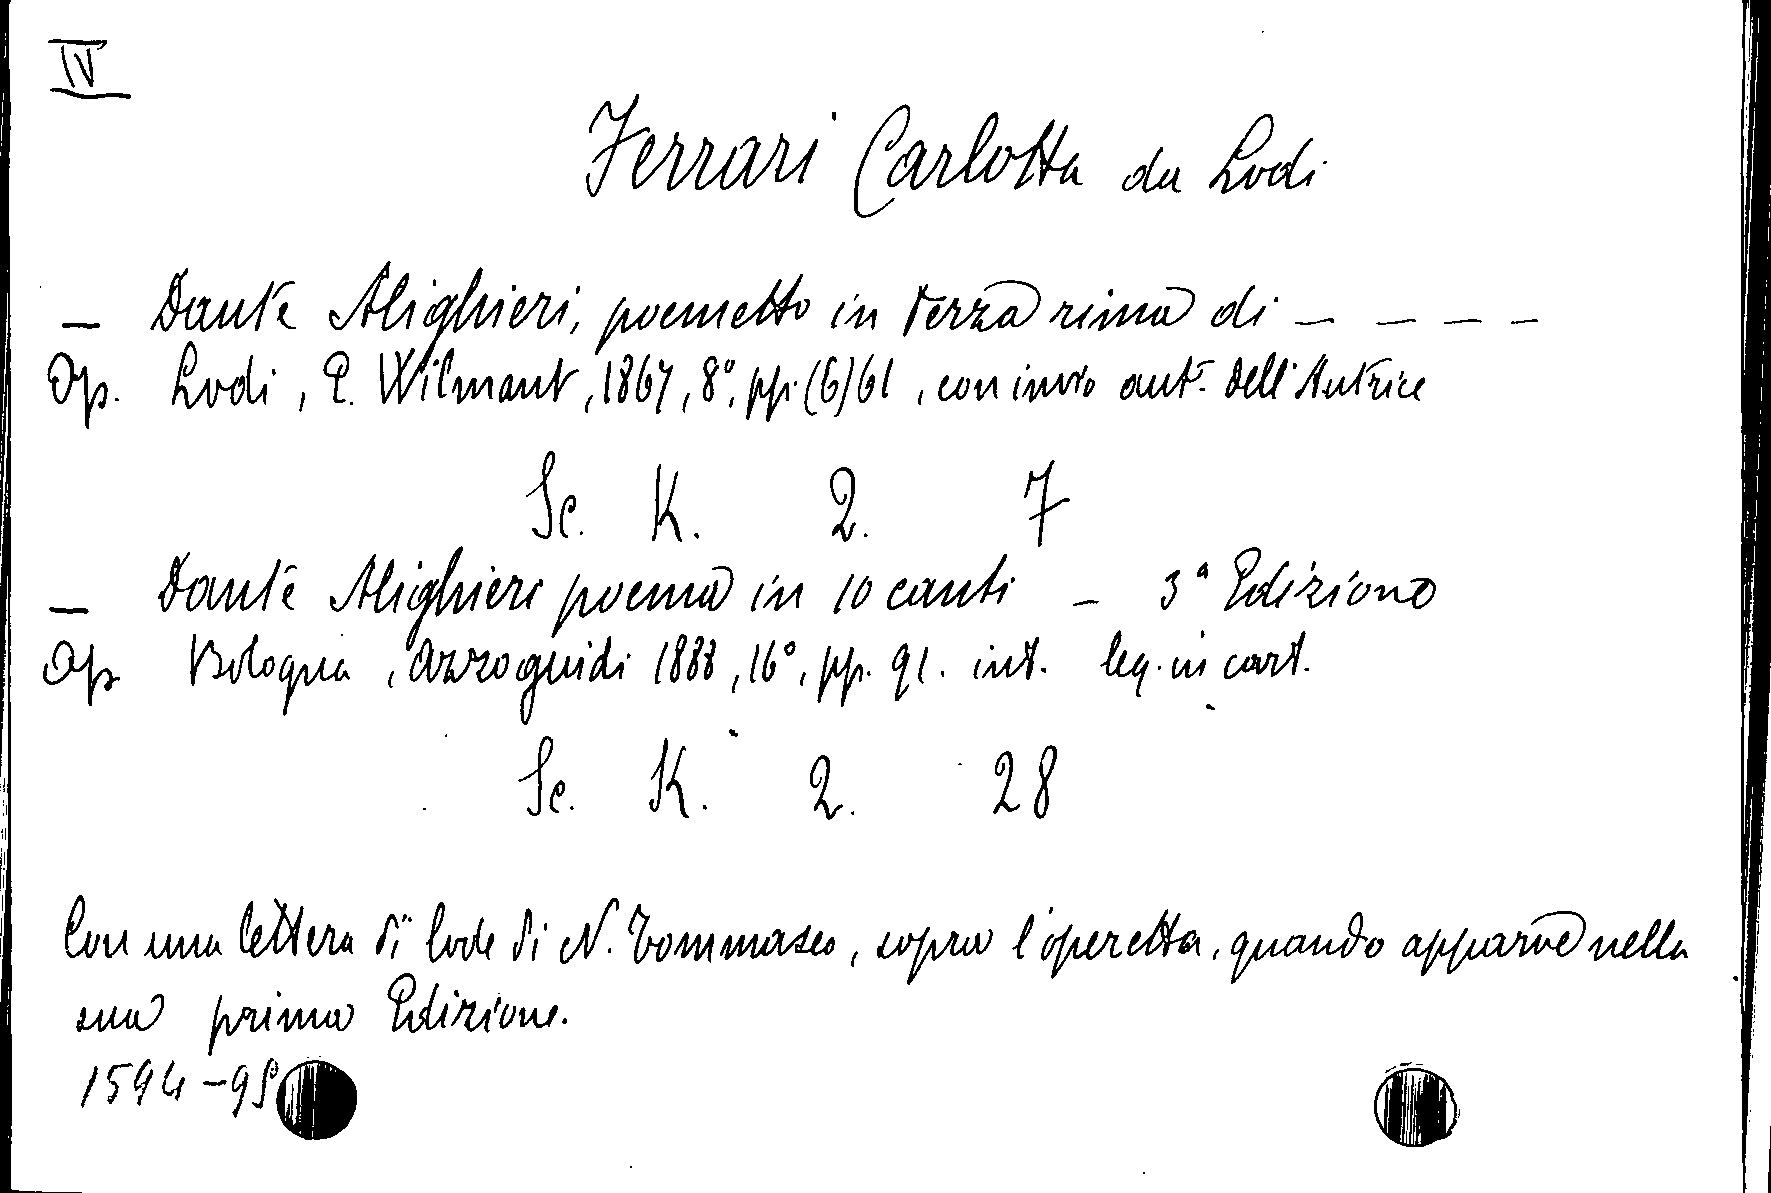 IV
Ferrari Carlotta da Lodi
— Dante Alighieri, poemetto in terza rima di _ _ _ _
Op. Lodi, C. Wilmant, 1867, 8°, pp. (6) 61, con invio aut. dell'Autrice
Sc. K. 2. 7
— Dante Alighieri poema in 10 canti — 3ª Edizione
Op. Bologna, Azzoguidi 1888, 16°, pp. 91. int. leg. in cart.
Sc. K. 2. 28
Con una lettera di lode di N. Tommaseo, sopra l'operetta, quando apparve nella
sua prima Edizione.
1594-95